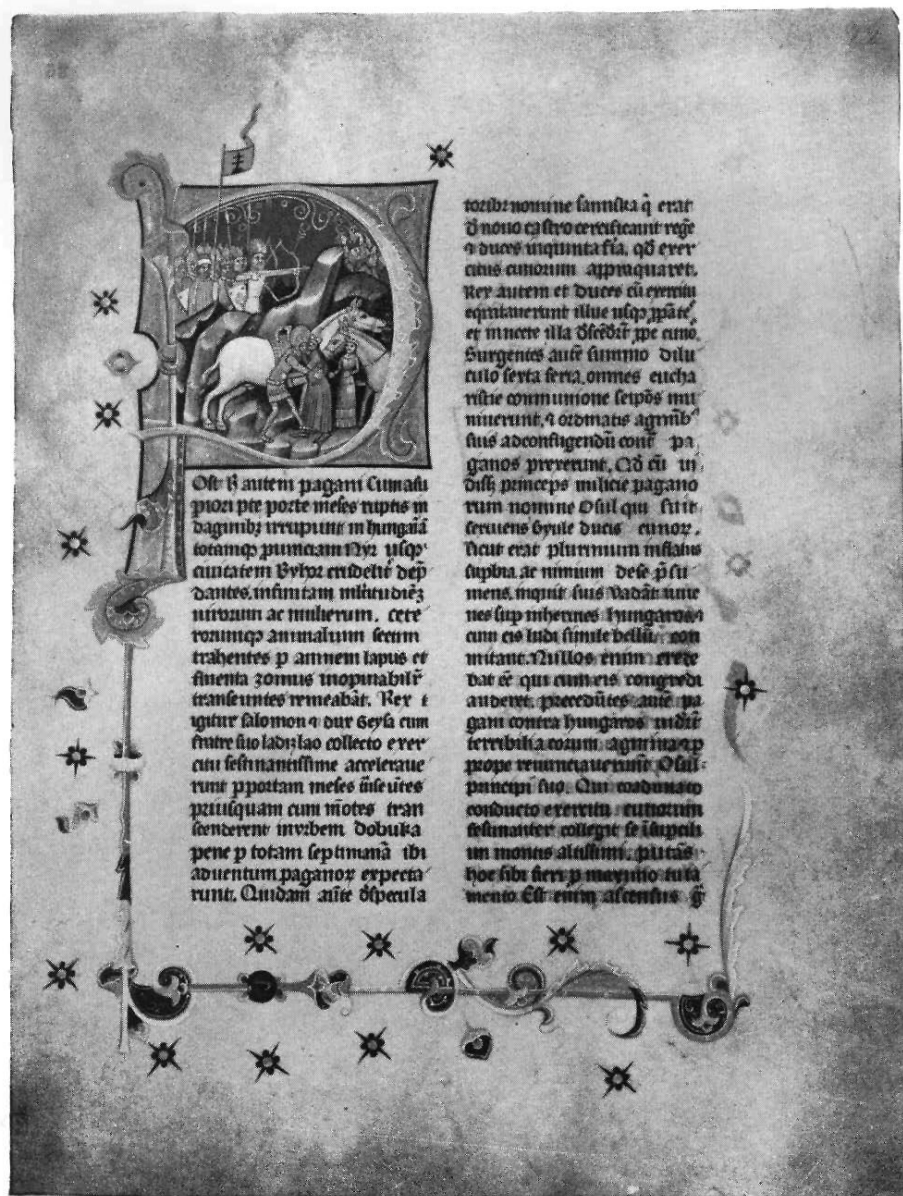 Ost h autem pagani Cumi a su
piori pte porte meses ruptis in
daginibz irrupunt in hungaiā
totamqꝫ punciam Nyr usqꝫ
ciuitatem Byhor crudelit dep
dantes. infinitam mltitudiēz
uirorum ac mulierum. cete
rorumqꝫ animalium secum
trahentes p amnem lapus et
fluenta zomus inopinabilr
transeuntes remeabāt. Rex
igitur salomon ⁊ dux Geysa cum
fratre suo ladizlao collecto exer
citu festinantissime acceleraue
runt p portam meses
priusquam cum mōtes tran
scenderent in vrbem dobuka
pene p totam septimanā ibi
aduentum paganoꝝ expecta
runt. Quidam aūte d specula
toribz nomine fanciska q̄ erat
d nouo castro certificauit regē
⁊ duces in quinta fīa. qd exer
citus cunorum appropiquaret.
Rex autem et duces cū exercitu
equitauerunt illuc usqꝫ
et in nocte illa dscēdr̄t ꝓpe cuno.
Surgentes autē summo dilu
culo sexta feria. omnes eucha
ristie communione seipōs mu
nierunt. ⁊ ordinatis agmib
suis ad confligendū cont pa
ganos prexerunt. Qd cū ui
diss princeps milicie pagano
rum nomine Osul qui fuit
seruiens Gyule ducis cunoꝝ.
sicut erat plurimum inflatus
supbia. ac nimium de se p̄su
mens. inquit suis Vadāt iuue
nes sup inhermes hungaros ⁊
cum eis ludi simile bellū com
mitant. Nullos enim crede
bat eē qui cum eis congredi
auderet. precedētes autē pa
gani contra hungaros uidr̄t
terribilia eorum agmina ⁊ p
prope renunciauerunt Osul
principi suo. Qui coadunato
conducto exercitu cunorum
festinanter collegit se
um montis altissimi. putās
hoc sibi fieri p maximo tuta
mento Est enim ascensus